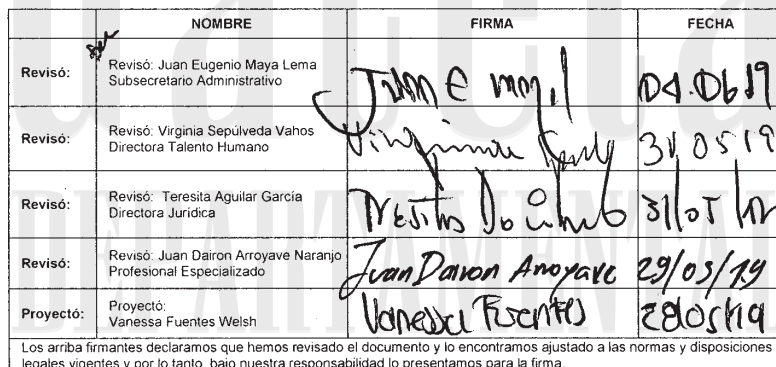 NOMBRE FIRMA FECHA
Revisó: Revisó: Juan Eugenio Maya Lema
Subsecretario Administrativo
04.06.19
Revisó: Revisó: Virginia Sepúlveda Vahos
Directora Talento Humano
31 05 19
Revisó: Revisó: Teresita Aguilar García
Directora Jurídica
31/05/19
Revisó: Revisó: Juan Dairon Arroyave Naranjo
Profesional Especializado
Juan Dairon Arroyave 29/05/19
Proyectó: Proyectó:
Vanessa Fuentes Welsh
Vanessa Fuentes 28/05/19
Los arriba firmantes declaramos que hemos revisado el documento y lo encontramos ajustado a las normas y disposiciones
legales vigentes y por lo tanto, bajo nuestra responsabilidad lo presentamos para la firma.